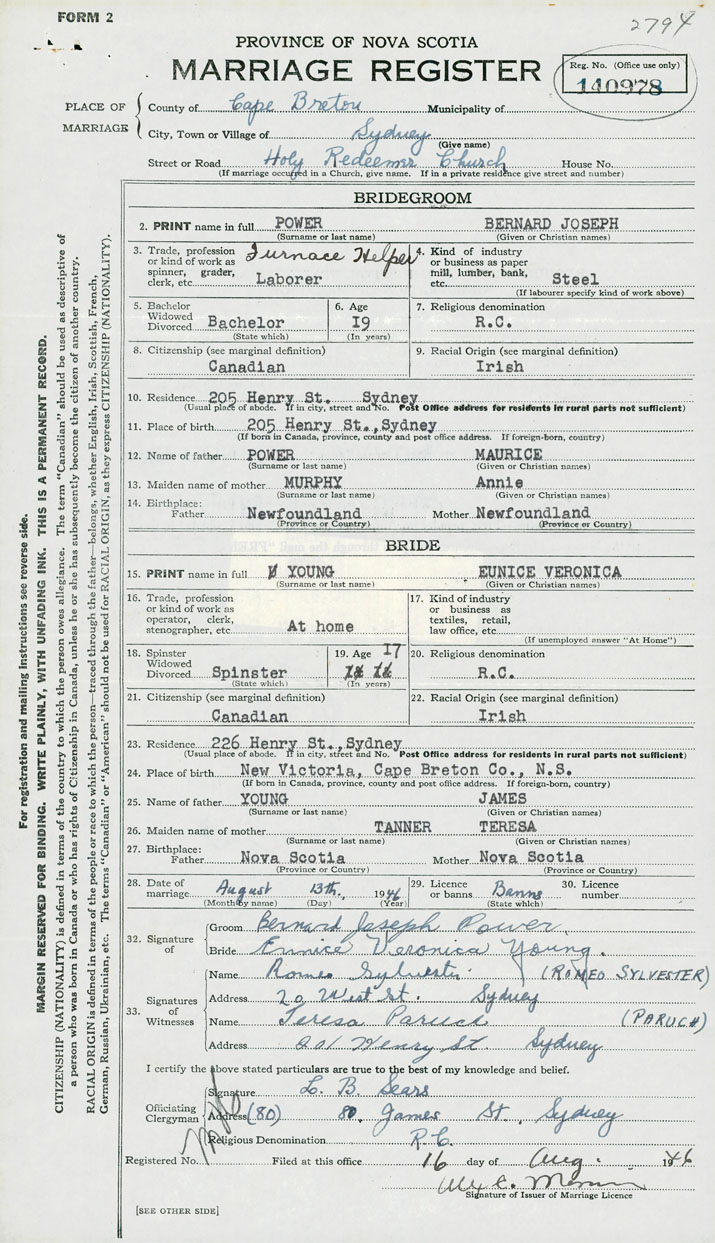 FORM 2
2794
PROVINCE OF NOVA SCOTIA
MARRIAGE REGISTER
Reg. No. (Office use only)
140978
PLACE OF MARRIAGE
County of Cape Breton Municipality of
City, Town or Village of Sydney
(Give name)
Street or Road Holy Redeemer Church House No.
(If marriage occurred in a Church, give name. If in a private residence give street and number)
BRIDEGROOM
2. PRINT name in full POWER BERNARD JOSEPH
(Surname or last name) (Given or Christian names)
3. Trade, profession or kind of work as spinner, grader, clerk, etc. Furnace Helper Laborer
4. Kind of industry or business as paper mill, lumber, bank, etc. Steel
(If labourer specify kind of work above)
5. Bachelor Widowed Divorced Bachelor
(State which)
6. Age 19
(In years)
7. Religious denomination
R.C.
8. Citizenship (see marginal definition)
Canadian
9. Racial Origin (see marginal definition)
Irish
10. Residence 205 Henry St. Sydney
(Usual place of abode. If in city, street and No. Post Office address for residents in rural parts not sufficient)
11. Place of birth 205 Henry St., Sydney
(If born in Canada, province, county and post office address. If foreign-born, country)
12. Name of father POWER MAURICE
(Surname or last name) (Given or Christian names)
13. Maiden name of mother MURPHY Annie
(Surname or last name) (Given or Christian names)
14. Birthplace: Father Newfoundland Mother Newfoundland
(Province or Country) (Province or Country)
BRIDE
15. PRINT name in full YOUNG EUNICE VERONICA
(Surname or last name) (Given or Christian names)
16. Trade, profession or kind of work as operator, clerk, stenographer, etc. At home
17. Kind of industry or business as textiles, retail, law office, etc.
(If unemployed answer "At Home")
18. Spinster Widowed Divorced Spinster
(State which)
19. Age 17
(In years)
20. Religious denomination
R.C.
21. Citizenship (see marginal definition)
Canadian
22. Racial Origin (see marginal definition)
Irish
23. Residence 226 Henry St., Sydney
(Usual place of abode. If in city, street and No. Post Office address for residents in rural parts not sufficient)
24. Place of birth New Victoria, Cape Breton Co., N.S.
(If born in Canada, province, county and post office address. If foreign-born, country)
25. Name of father YOUNG JAMES
(Surname or last name) (Given or Christian names)
26. Maiden name of mother TANNER TERESA
(Surname or last name) (Given or Christian names)
27. Birthplace: Father Nova Scotia Mother Nova Scotia
(Province or Country) (Province or Country)
28. Date of marriage August 13th, 1946
(Month by name) (Day) (Year)
29. Licence or banns Banns
(State which)
30. Licence number
32. Signature of
Groom Bernard Joseph Power
Bride Eunice Veronica Young.
33. Signatures of Witnesses
Name Romeo Sylvester (ROMEO SYLVESTER)
Address 20 West St. Sydney
Name Teresa Paruch (PARUCH)
Address 201 Henry St Sydney
I certify the above stated particulars are true to the best of my knowledge and belief.
Officiating Clergyman
Signature L. B. Sears
Address (80) 80. James St, Sydney
Religious Denomination R.C.
Registered No. Filed at this office 16 day of Aug. 1946
Signature of Issuer of Marriage Licence
[SEE OTHER SIDE]
For registration and mailing instructions see reverse side.
MARGIN RESERVED FOR BINDING. WRITE PLAINLY, WITH UNFADING INK. THIS IS A PERMANENT RECORD.
CITIZENSHIP (NATIONALITY) is defined in terms of the country to which the person owes allegiance. The term "Canadian" should be used as descriptive of
a person who was born in Canada or who has rights of Citizenship in Canada, unless he or she has subsequently become the citizen of another country.
RACIAL ORIGIN is defined in terms of the people or race to which the person—traced through the father—belongs, whether English, Irish, Scottish, French,
German, Russian, Ukrainian, etc. The terms "Canadian" or "American" should not be used for RACIAL ORIGIN, as they express CITIZENSHIP (NATIONALITY).